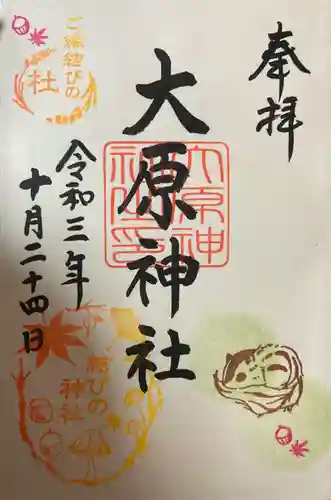 奉拝
大原神社
大原神社印
令和三年
十月二十四日
ご縁結びの
社
結びの
神社